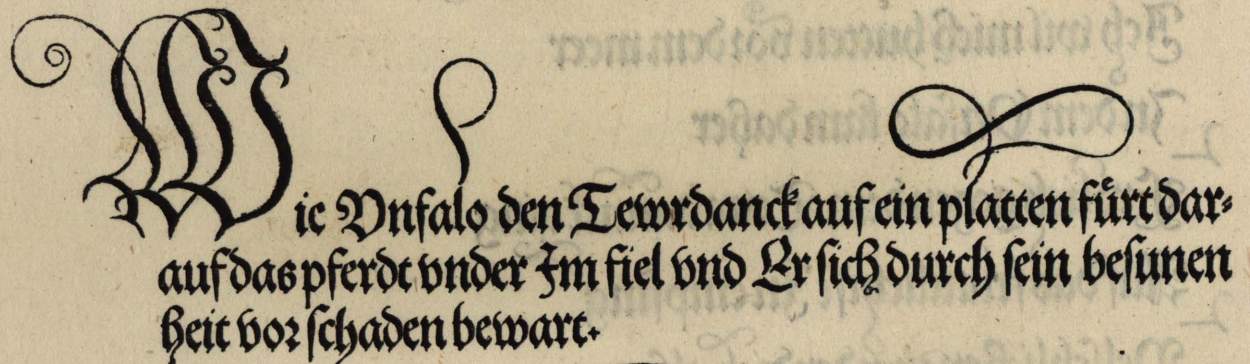 Wie Vnfalo den Tewrdanck auf ein platten fůrt dar⸗
auf das pferdt vnder Im fiel vnd Er sich durch sein besunen
heit vor schaden bewart.